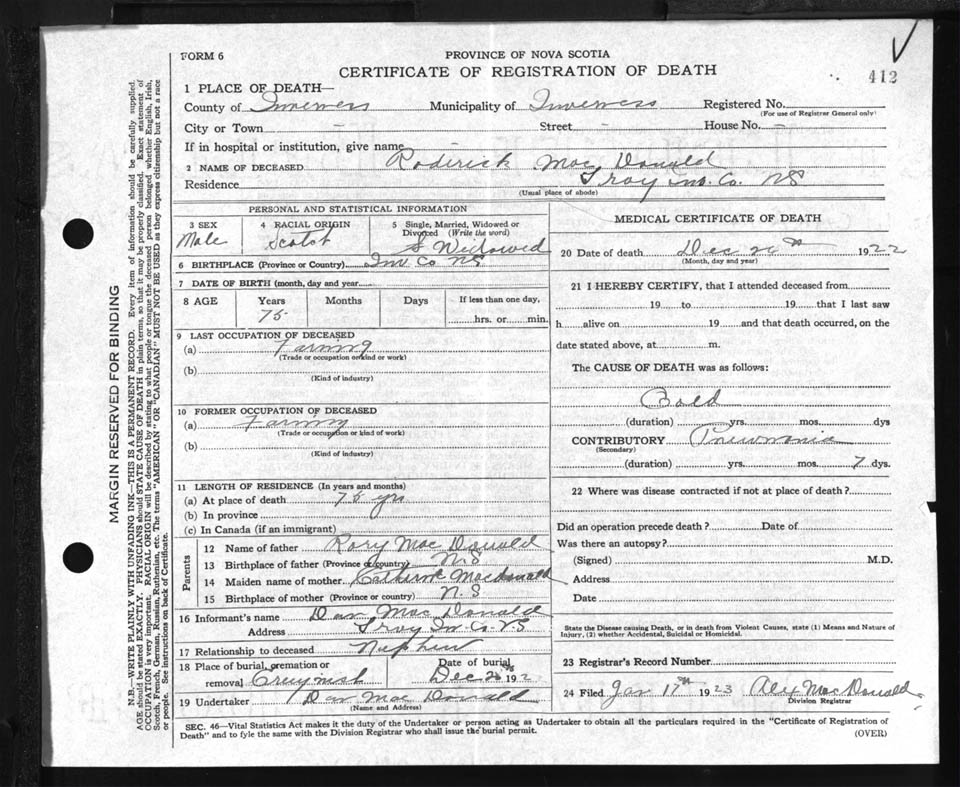 FORM 6
PROVINCE OF NOVA SCOTIA
CERTIFICATE OF REGISTRATION OF DEATH
412
1 PLACE OF DEATH—
County of Inverness Municipality of Inverness Registered No.
(For use of Registrar General only)
City or Town - Street - House No. -
If in hospital or institution, give name
2 NAME OF DECEASED Roderick Mac Donald
Residence Troy Inv. Co. NS
(Usual place of abode)
PERSONAL AND STATISTICAL INFORMATION
3 SEX 4 RACIAL ORIGIN 5 Single, Married, Widowed or Divorced (Write the word)
Male Scotch Widowed
6 BIRTHPLACE (Province or Country) Inv Co NS
7 DATE OF BIRTH (month, day and year)
8 AGE Years Months Days If less than one day,
75 hrs. or min.
9 LAST OCCUPATION OF DECEASED
(a) Farming
(Trade or occupation or kind or work)
(b)
(Kind of industry)
10 FORMER OCCUPATION OF DECEASED
(a) Farming
(Trade or occupation or kind of work)
(b)
(Kind of industry)
11 LENGTH OF RESIDENCE (In years and months)
(a) At place of death 75 yrs
(b) In province
(c) In Canada (if an immigrant)
Parents
12 Name of father Rory Mac Donald
13 Birthplace of father (Province or country) N.S
14 Maiden name of mother Catherine Macdonald
15 Birthplace of mother (Province or country) N.S
16 Informant's name Dan Mac Donald
Address Troy In. Co. N.S
17 Relationship to deceased Nephew
18 Place of burial, cremation or removal Date of burial
Dec 192
19 Undertaker Dan Mac Donald
(Name and Address)
MEDICAL CERTIFICATE OF DEATH
20 Date of death Dec 1922
(Month, day and year)
21 I HEREBY CERTIFY, that I attended deceased from
19 to 19 that I last saw
h alive on 19 and that death occurred, on the
date stated above, at m.
The CAUSE OF DEATH was as follows:
Cold
(duration) yrs. mos. dys
CONTRIBUTORY Pneumonia
(Secondary)
(duration) yrs. mos. 7 dys.
22 Where was disease contracted if not at place of death?
Did an operation precede death? Date of
Was there an autopsy?
(Signed) M.D.
Address
Date
State the Disease causing Death, or in death from Violent Causes, state (1) Means and Nature of
Injury, (2) whether Accidental, Suicidal or Homicidal.
23 Registrar's Record Number
24 Filed Jan 17th 1923 Alex Mac Donald
Division Registrar
SEC. 46—Vital Statistics Act makes it the duty of the Undertaker or person acting as Undertaker to obtain all the particulars required in the "Certificate of Registration of
Death" and to fyle the same with the Division Registrar who shall issue the burial permit.
(OVER)
MARGIN RESERVED FOR BINDING
N.B.—WRITE PLAINLY WITH UNFADING INK—THIS IS A PERMANENT RECORD. Every item of information should be carefully supplied.
AGE should be stated EXACTLY. PHYSICIANS should STATE CAUSE OF DEATH in plain terms, so that it may be properly classified. Exact statement of
OCCUPATION is very important. RACIAL ORIGIN will be described by stating to what people or tongue the deceased person belonged whether English, Irish,
Scotch, French, German, Russian, Ruthenian, etc. The terms "AMERICAN" or "CANADIAN" MUST NOT BE USED as they express citizenship but not a race
or people. See instructions on back of Certificate.